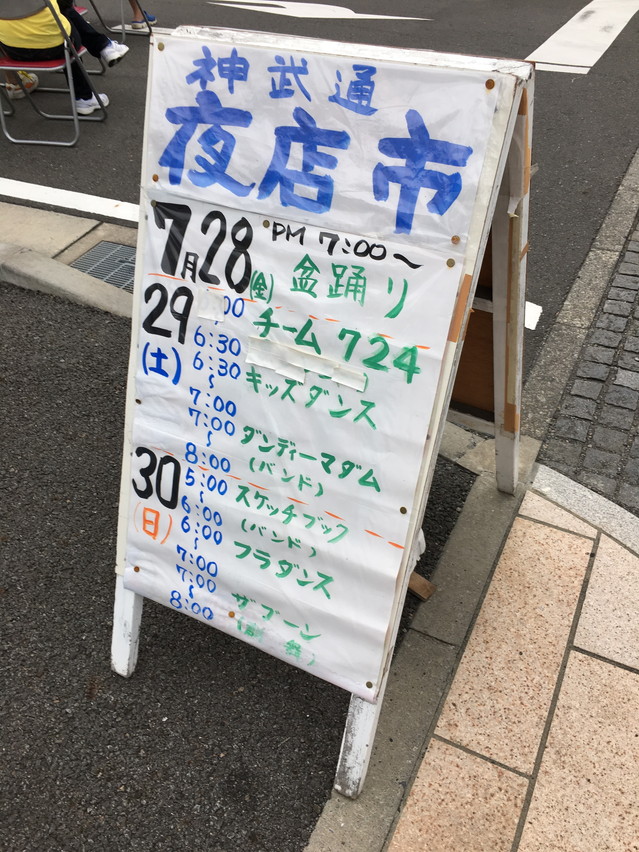 神武通
夜店市
7月28(金) PM 7:00〜 盆踊り
29(土) :00〜6:30 チーム724
6:30〜7:00 キッズダンス
7:00〜8:00 ダンディーマダム
(バンド)
30(日) 5:00〜6:00 スケッチブック
(バンド)
6:00〜7:00 フラダンス
7:00〜8:00